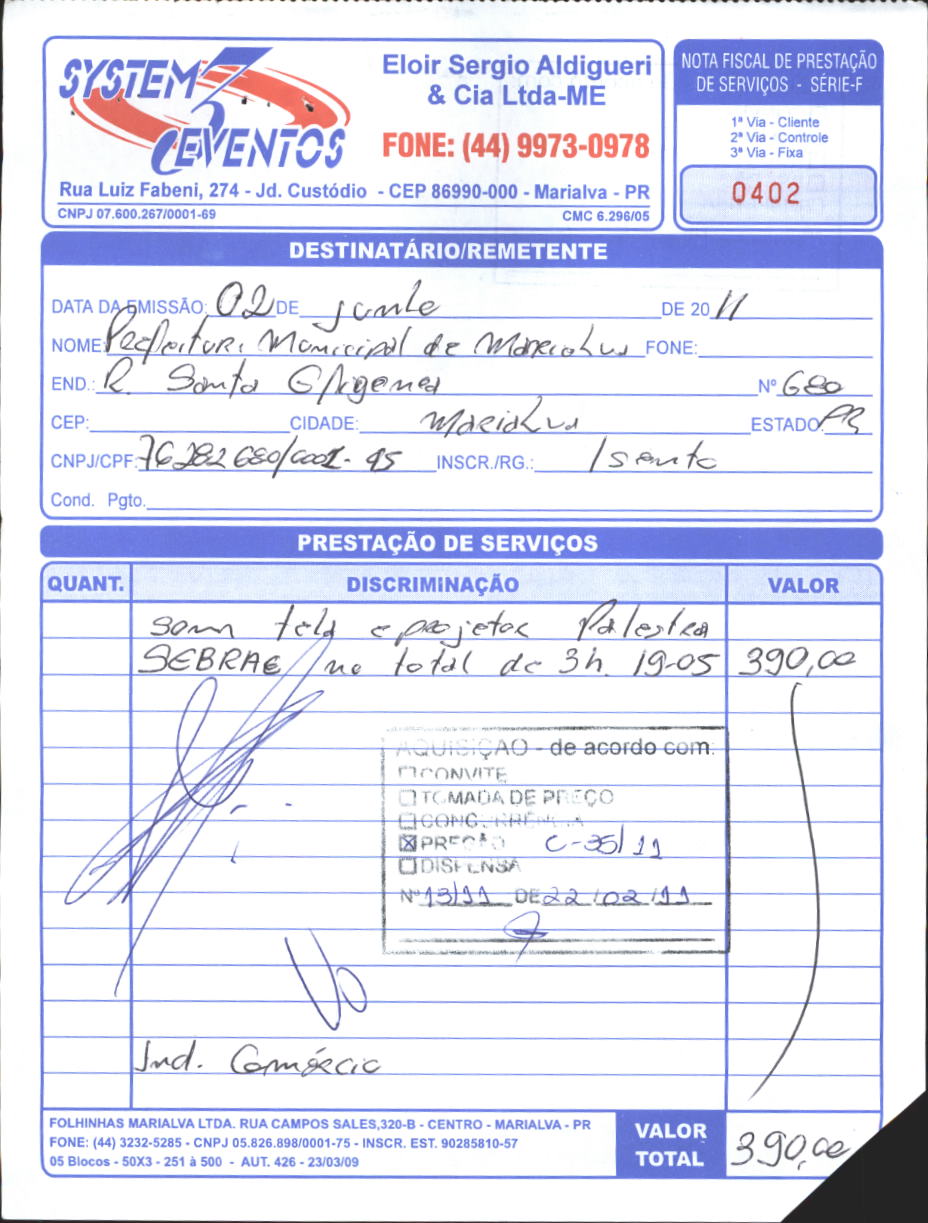 SYSTEM 3 EVENTOS
Eloir Sergio Aldigueri
& Cia Ltda-ME
FONE: (44) 9973-0978
Rua Luiz Fabeni, 274 - Jd. Custódio - CEP 86990-000 - Marialva - PR
CNPJ 07.600.267/0001-69 CMC 6.296/05
NOTA FISCAL DE PRESTAÇÃO
DE SERVIÇOS - SÉRIE-F
1ª Via - Cliente
2ª Via - Controle
3ª Via - Fixa
0402
DESTINATÁRIO/REMETENTE
DATA DA EMISSÃO: 02 DE junho DE 2011
NOME: Prefeitura Municipal de Marialva FONE:
END.: R. Santa Efigenea Nº 680
CEP: CIDADE: Marialva ESTADO: PR
CNPJ/CPF: 76282680/0001-45 INSCR./RG.: Isento
Cond. Pgto.
PRESTAÇÃO DE SERVIÇOS
QUANT. DISCRIMINAÇÃO VALOR
som tela e projetor Palestra
SEBRAE no total de 3h. 19-05 390,00
AQUISIÇÃO - de acordo com:
CONVITE
TOMADA DE PREÇO
CONCURRÊNCIA
PREGÃO C-35/11
DISPENSA
Nº 13/11 DE 22/02/11
Ind. Comércio
FOLHINHAS MARIALVA LTDA. RUA CAMPOS SALES,320-B - CENTRO - MARIALVA - PR
FONE: (44) 3232-5285 - CNPJ 05.826.898/0001-75 - INSCR. EST. 90285810-57
05 Blocos - 50X3 - 251 à 500 - AUT. 426 - 23/03/09
VALOR
TOTAL 390,00